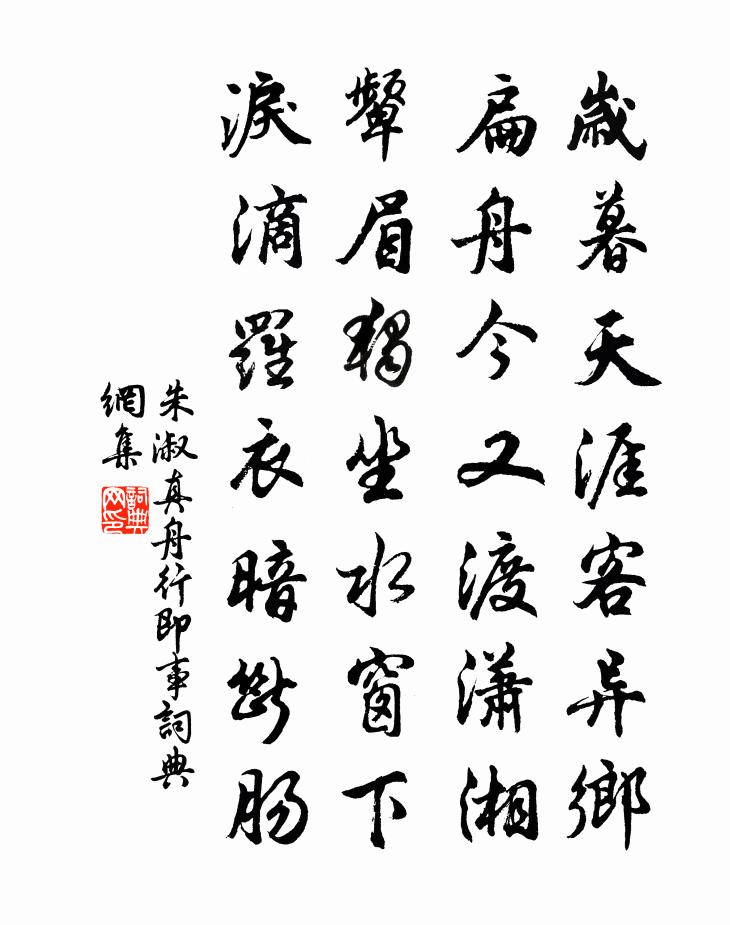 歲暮天涯客异鄉
扁舟今又渡瀟湘
顰眉獨坐水窗下
淚滴羅衣暗斷腸
朱淑真舟行即事詞典
網集
詞典网印